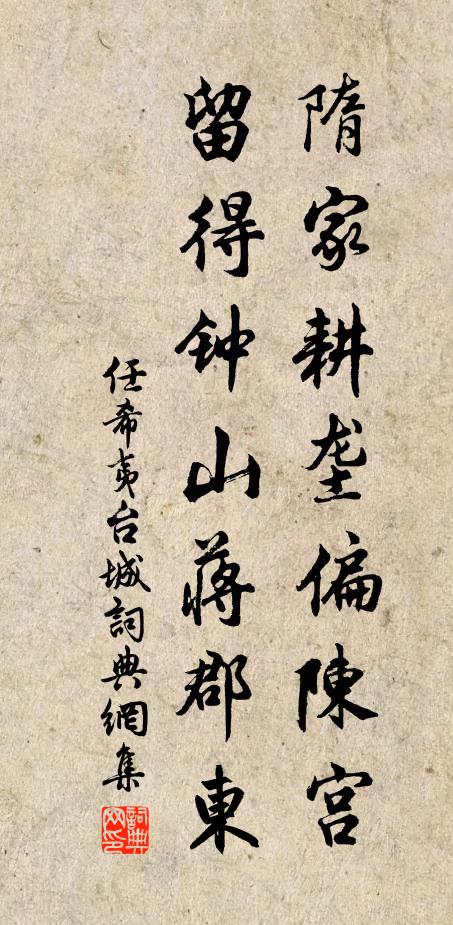 隋家耕垄偏陳宫
留得钟山蔣郡東
任希夷台城詞典網集
詞典网印